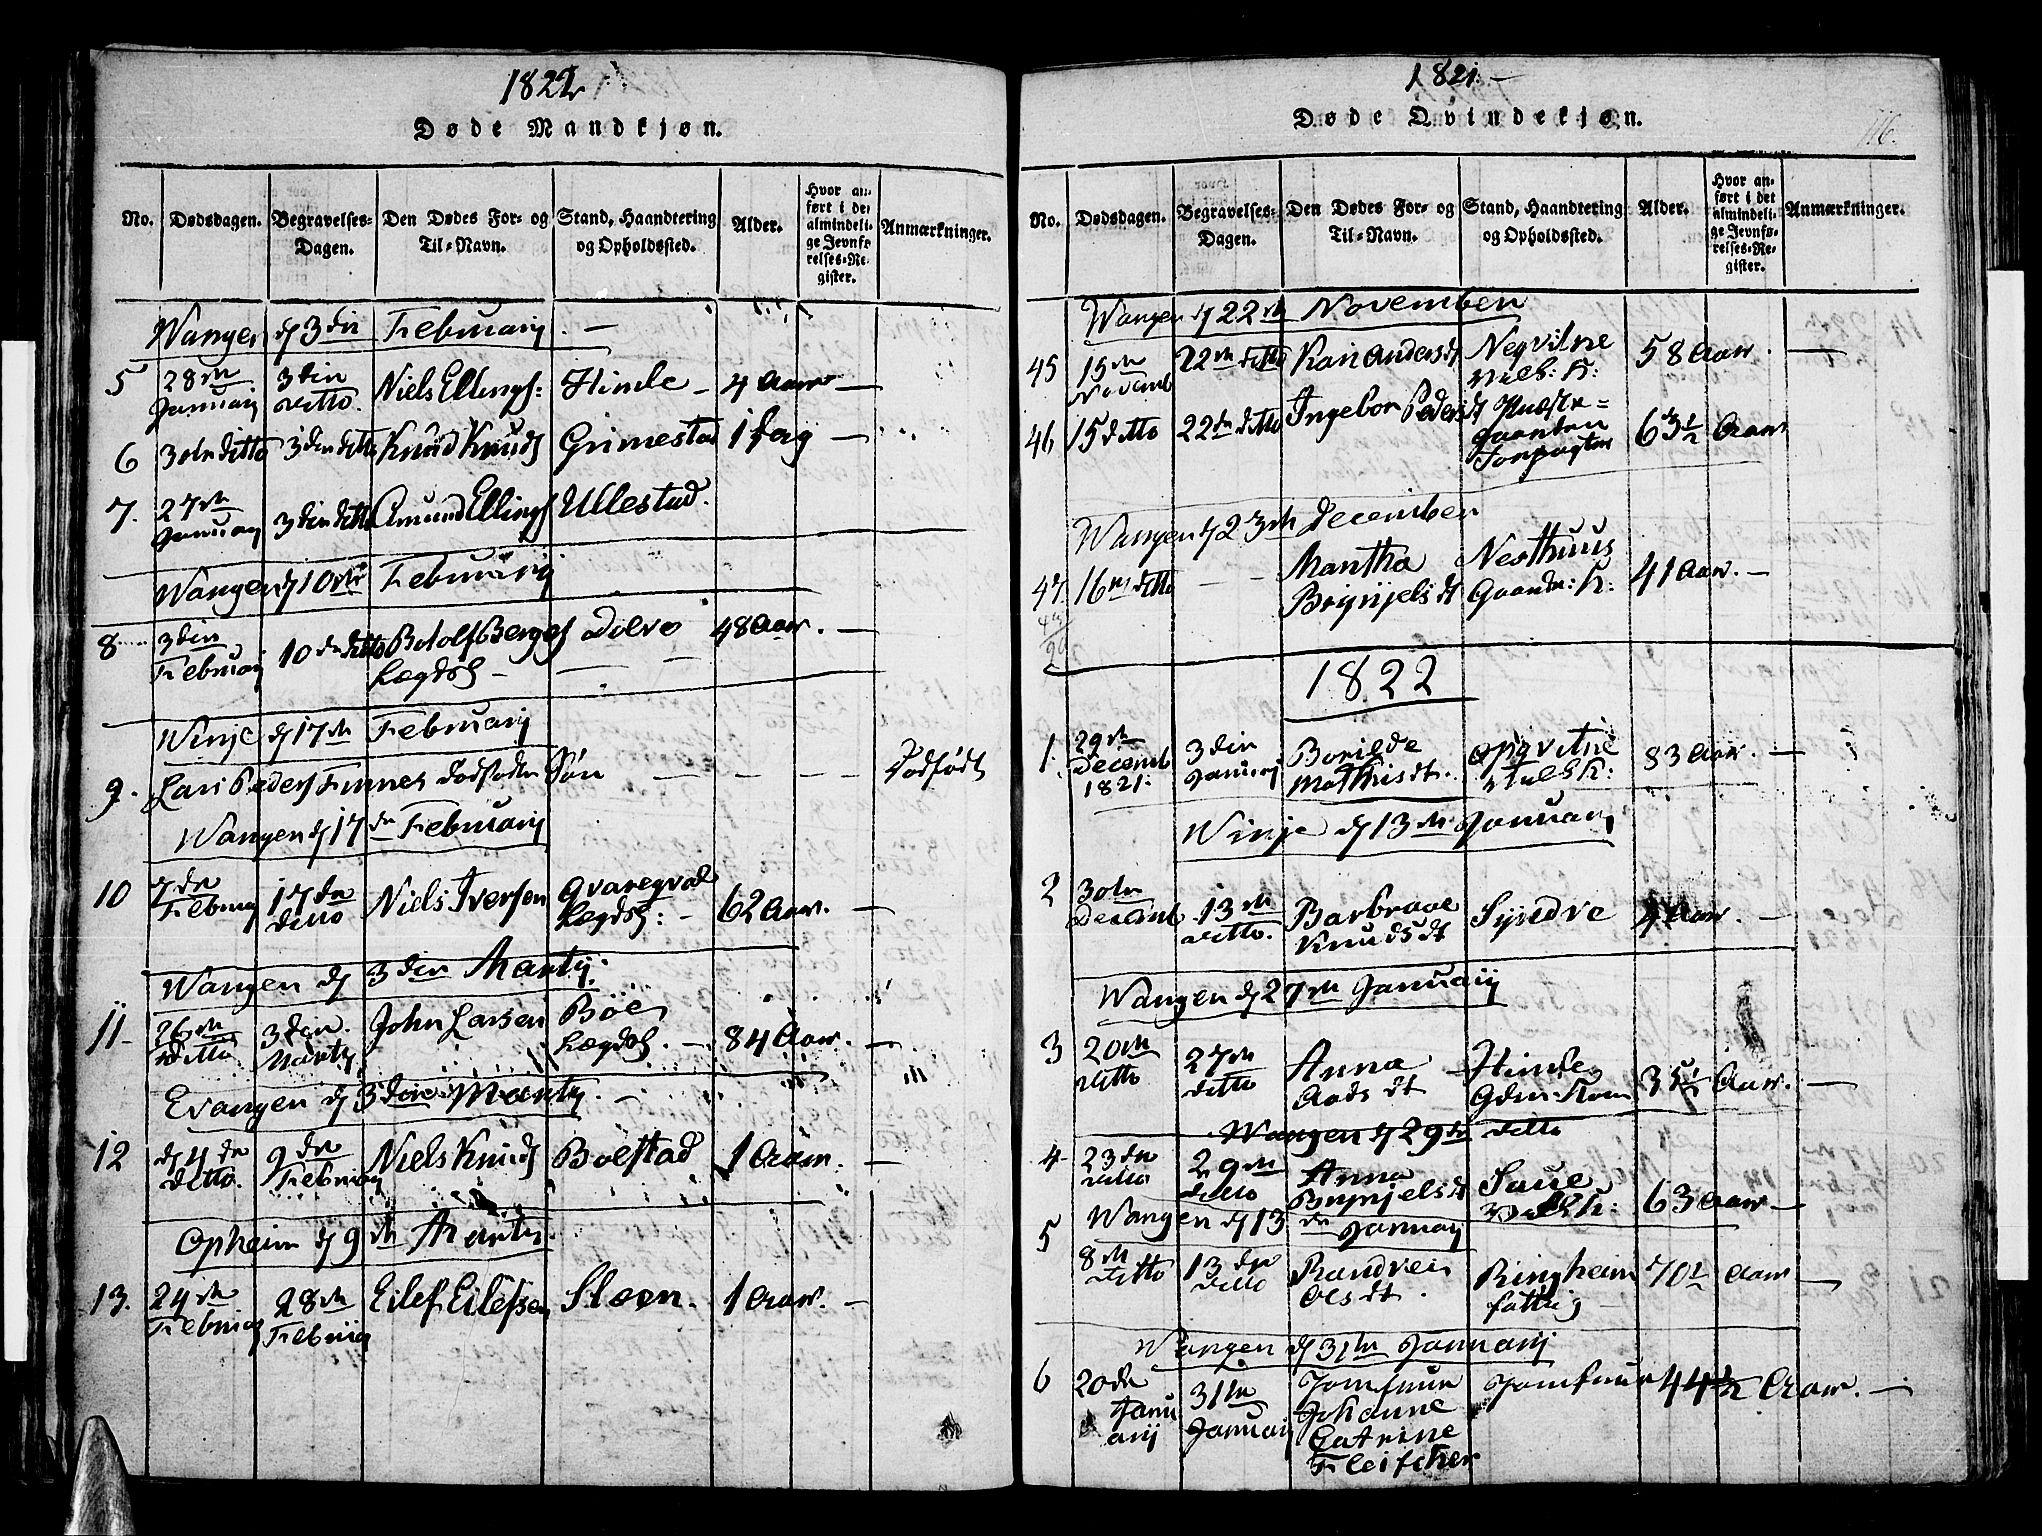 1822
Døde Mandkjøn.
No. Dødsdagen. Begravelses-Dagen. Den Dødes For- og Til-Navn. Stand, Haandtering og Opholdssted. Alder. Hvor anført i det almindelige Jevnførelses-Register. Anmærkninger.
Wangen d 3die Februarij. —
5 28de Januarij 3die ditto. Niels Ellings: Himle — 4 Aar —
6 3die ditto 3die ditto Knud Knuds Grimestad 1 Dag —
7. 27de Januarij 3die ditto Amund Ellings Ullestad.
Wangen d 10de Februarij
8 3die Februarij 10de ditto Botolf Bergs Lægdsl — Dolve 48 Aar. —
Winje d 17de Februarij
9. Lars Peders Finnes dødfødte Søn — — — — Dødfødt
Wangen d 17de Februarij
10 7de Februarij 17de ditto Niels Iversen Qvaregval Lægdsl: — 62 Aar. —
Wangen d 3die Martij.
11 26de ditto 3die Martij John Larsen Böe Lægdsl. — 84 Aar. —
Evangen d 3die Martij. —
12 d 4de ditto. 9de Februarij Niels Knuds Bolstad 1 Aar. —
Opheim d 9de Martij.
13. 24de Februarij 28de Februarij Eilef Eilefsen Sløen. 1 Aar. —
1821. —
Døde Qvindekjøn.
116.
No. Dødsdagen. Begravelses-Dagen. Den Dødes For- og Til-Navn. Stand, Haandtering og Opholdssted. Alder. Hvor anført i det almindelige Jevnførelses-Register. Anmærkninger.
Wangen d 22de November
45 15de Novemb 22de ditto Kari Andersdt Neqvitne 58 Aar. —
46 15 ditto 22de ditto Ingebor Pedersdt 63½ Aar
Wangen d 23de December
47. 16de ditto — — Martha Brynjelsdt Nesthuus Gaardm: K: 41 Aar. —
43
90
1822
1. 29de Decemb 1821. 3die Januarij Borilde Mathisdt. 83 Aar. —
Winje d 13de Januarij
2 30te Decemb 13de ditto. Barbraae Knudsdt Syndve Aar. —
Wangen d 27de Januarij
3 20de ditto 27de ditto Anna Aadsdt Himle Gdm: Kone 35½ Aar. —
Wangen d 29de ditto
4 23de ditto 29de ditto Anna Brynjelsdt Saue 63 Aar —
Wangen d 13de Januarij
5 8de ditto 13de ditto Randvei Olsdt. Ringheim fattig — 70½ Aar —
Wangen d 31te Januarij
6 20de Januarij 31te Januarij Jomfrue Johanne Catrine Fleischer Jomfrue 44½ Aar. —